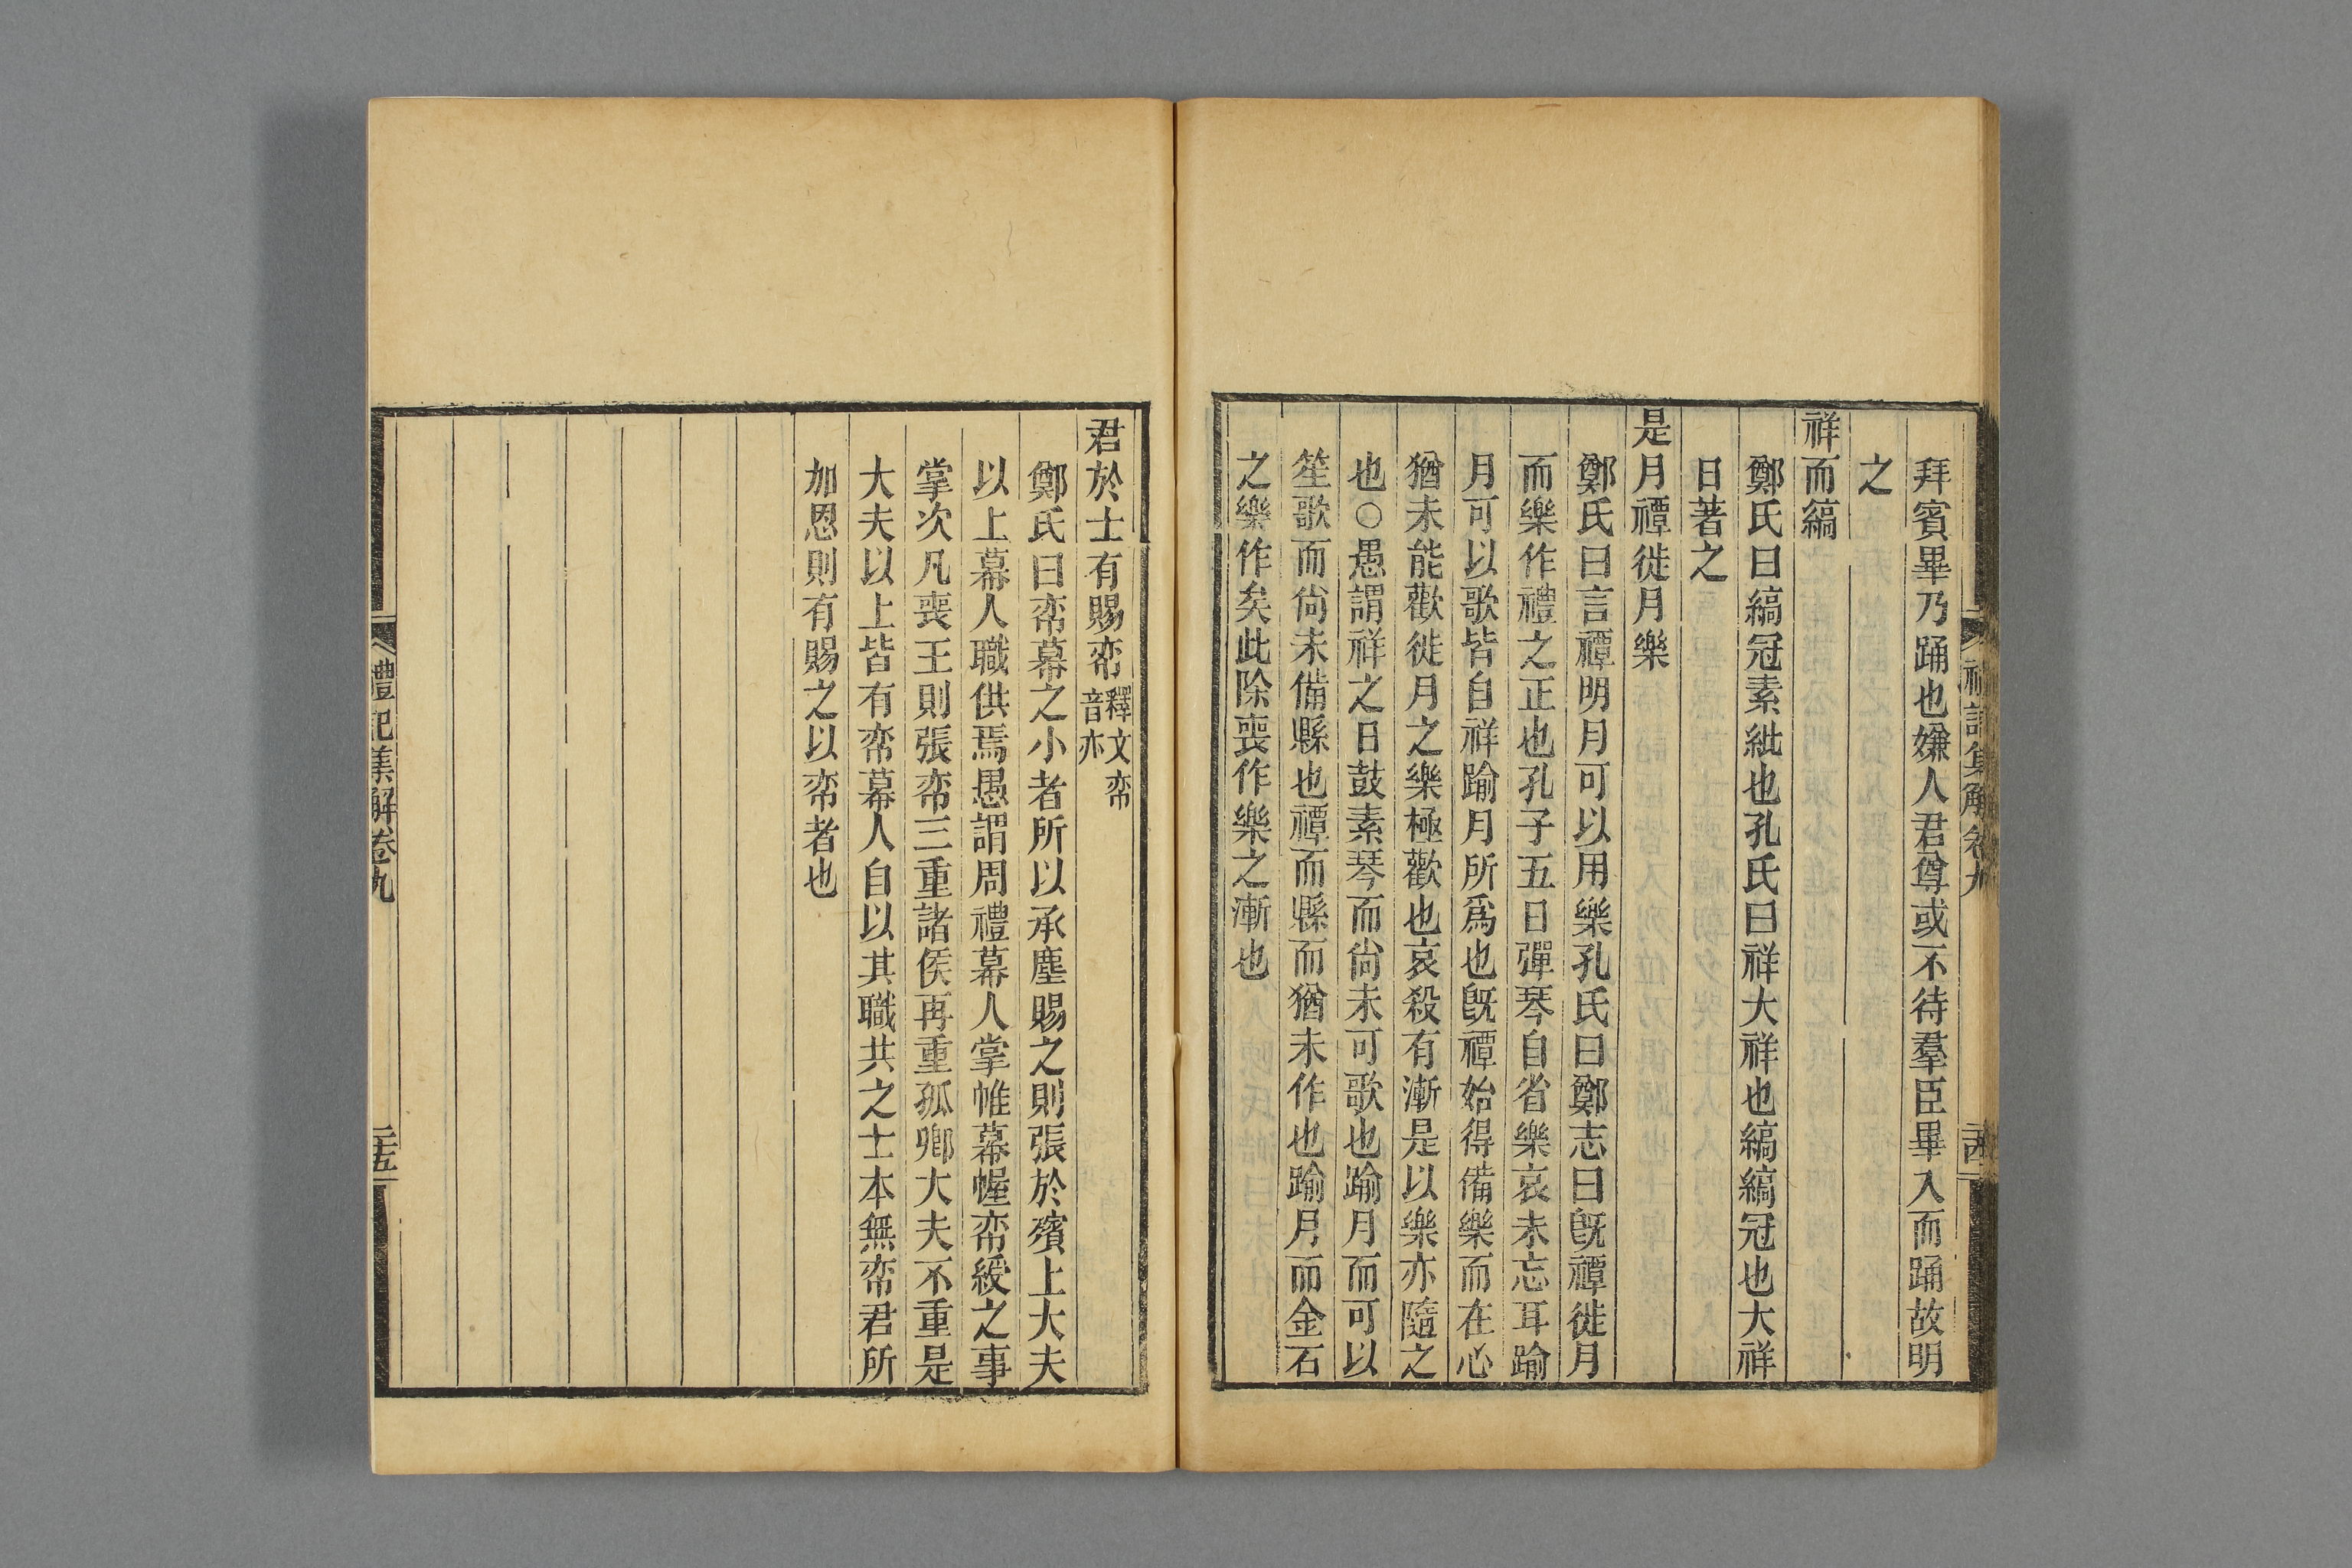 拜賓畢乃踊也嫌人君尊或不待羣臣畢入而踊故明
之
祥而縞
鄭氏曰縞冠素紕也孔氏曰祥大祥也縞縞冠也大祥
日著之
是月禫徙月樂
鄭氏曰言禫明月可以用樂孔氏曰鄭志曰旣禫徙月
而樂作禮之正也孔子五日彈琴自省樂哀未忘耳踰
月可以歌皆自祥踰月所爲也旣禫始得備樂而在心
猶未能歡徙月之樂極歡也哀殺有漸是以樂亦隨之
也○愚謂祥之日鼓素琴而尙未可歌也踰月而可以
笙歌而尙未備縣也禫而縣而猶未作也踰月而金石
之樂作矣此除喪作樂之漸也
君於士有賜帟釋文帟
音亦
鄭氏曰帟幕之小者所以承塵賜之則張於殯上大夫
以上幕人職供焉愚謂周禮幕人掌帷幕幄帟綬之事
掌次凡喪王則張帟三重諸侯再重孤卿大夫不重是
大夫以上皆有帟幕人自以其職共之士本無帟君所
加恩則有賜之以帟者也
禮記集解卷九
二十五